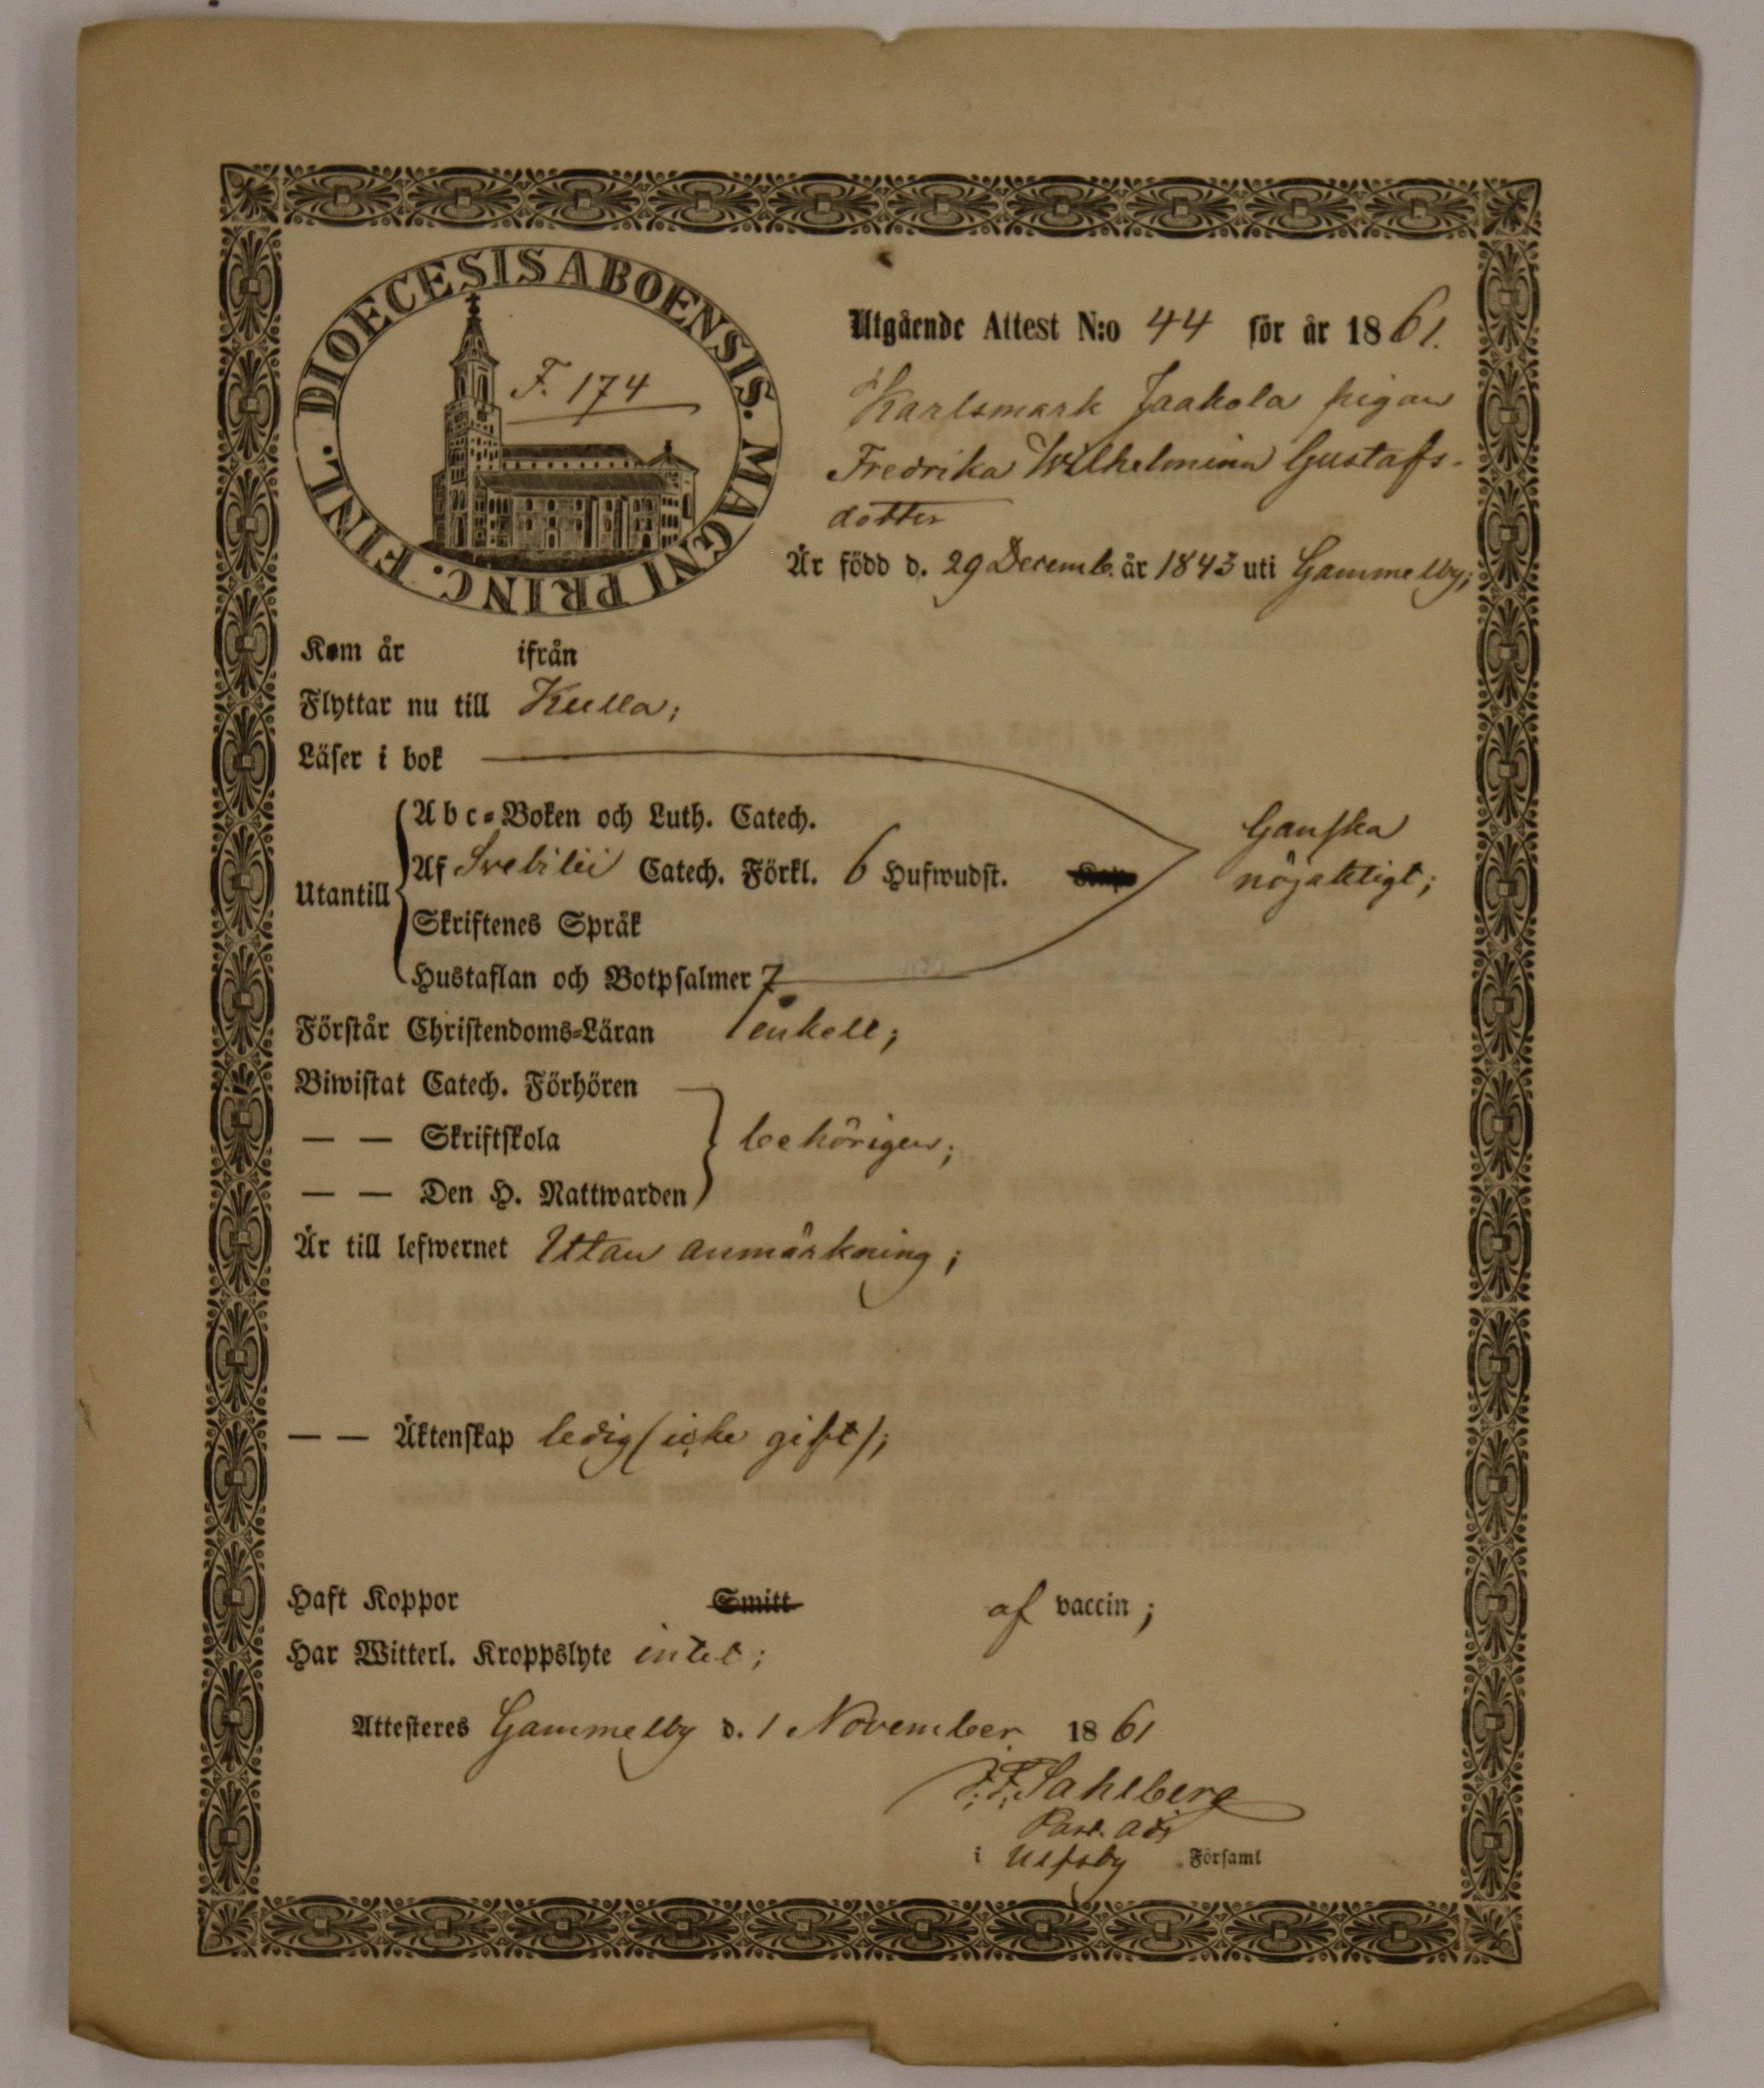 DIOECESIS ABOENSIS. MAGNI PRINC. FINL.
F. 174
Utgående Attest N:o 44 för år 1861.
Karlsmark Jaakola pigan
Fredrika Wilhelmina Gustafs-
dotter
Är född d. 29 Decemb. år 1843 uti Gammelby;
Kom år ifrån
Flyttar nu till Kulla;
Läser i bok
Abc-Boken och Luth. Catech.
Ganska
Utantill
Af Svebilii Catech. Förkl. 6 Hufwudst.
nöjaktigt;
Skriftenes Språk
Hustaflan och Botpsalmer 7
Förstår Christendoms-Läran enkelt;
Biwistat Catech. Förhören
— — Skriftskola behörigen;
— — Den H. Nattwarden
Är till lefwernet Utan anmärkning;
— — Äktenskap ledig (icke gift);
Haft Koppor Smitt af vaccin;
Har Witterl. Kroppslyte intet;
Attesteres Gammelby d. 1 November 1861
F. F. Sahlberg
Past. adj
i Ulfsby Församl